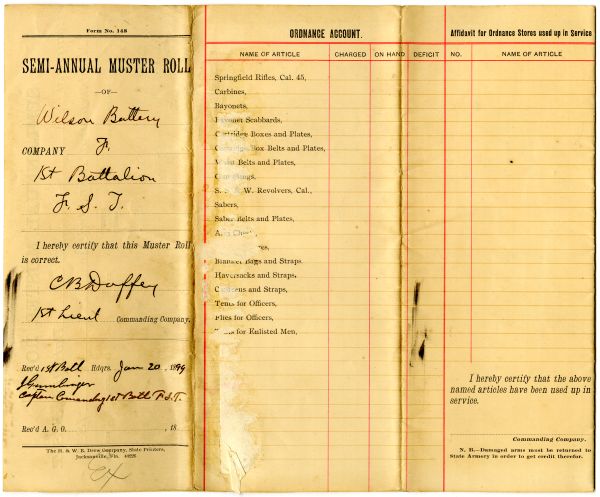 Form No. 148
SEMI-ANNUAL MUSTER ROLL
—OF—
Wilson Battery
COMPANY F.
1st Battalion
F. S. T.
I hereby certify that this Muster Roll
is correct.
C B Duffey
1st Lieut Commanding Company.
Rec'd 1st Batt Hdqrs. Jan 20 1899
Captain Commandg 1st Batt F.S.T.
Rec'd A. G. O. 18
The H. & W. B. Drew Company, State Printers,
Jacksonville, Fla.
ORDNANCE ACCOUNT.
NAME OF ARTICLE CHARGED ON HAND DEFICIT
Springfield Rifles, Cal. 45,
Carbines,
Bayonets,
Bayonet Scabbards,
Cartridge Boxes and Plates,
Cartridge Box Belts and Plates,
Waist Belts and Plates,
Gun Slings,
S. & W. Revolvers, Cal.,
Sabers,
Saber Belts and Plates,
Arm Chests,
Blanket Bags and Straps.
Haversacks and Straps.
Canteens and Straps,
Tents for Officers,
Flies for Officers,
Tents for Enlisted Men,
Affidavit for Ordnance Stores used up in Service
NO. NAME OF ARTICLE
I hereby certify that the above
named articles have been used up in
service.
Commanding Company.
N. B.—Damaged arms must be returned to
State Armory in order to get credit therefor.